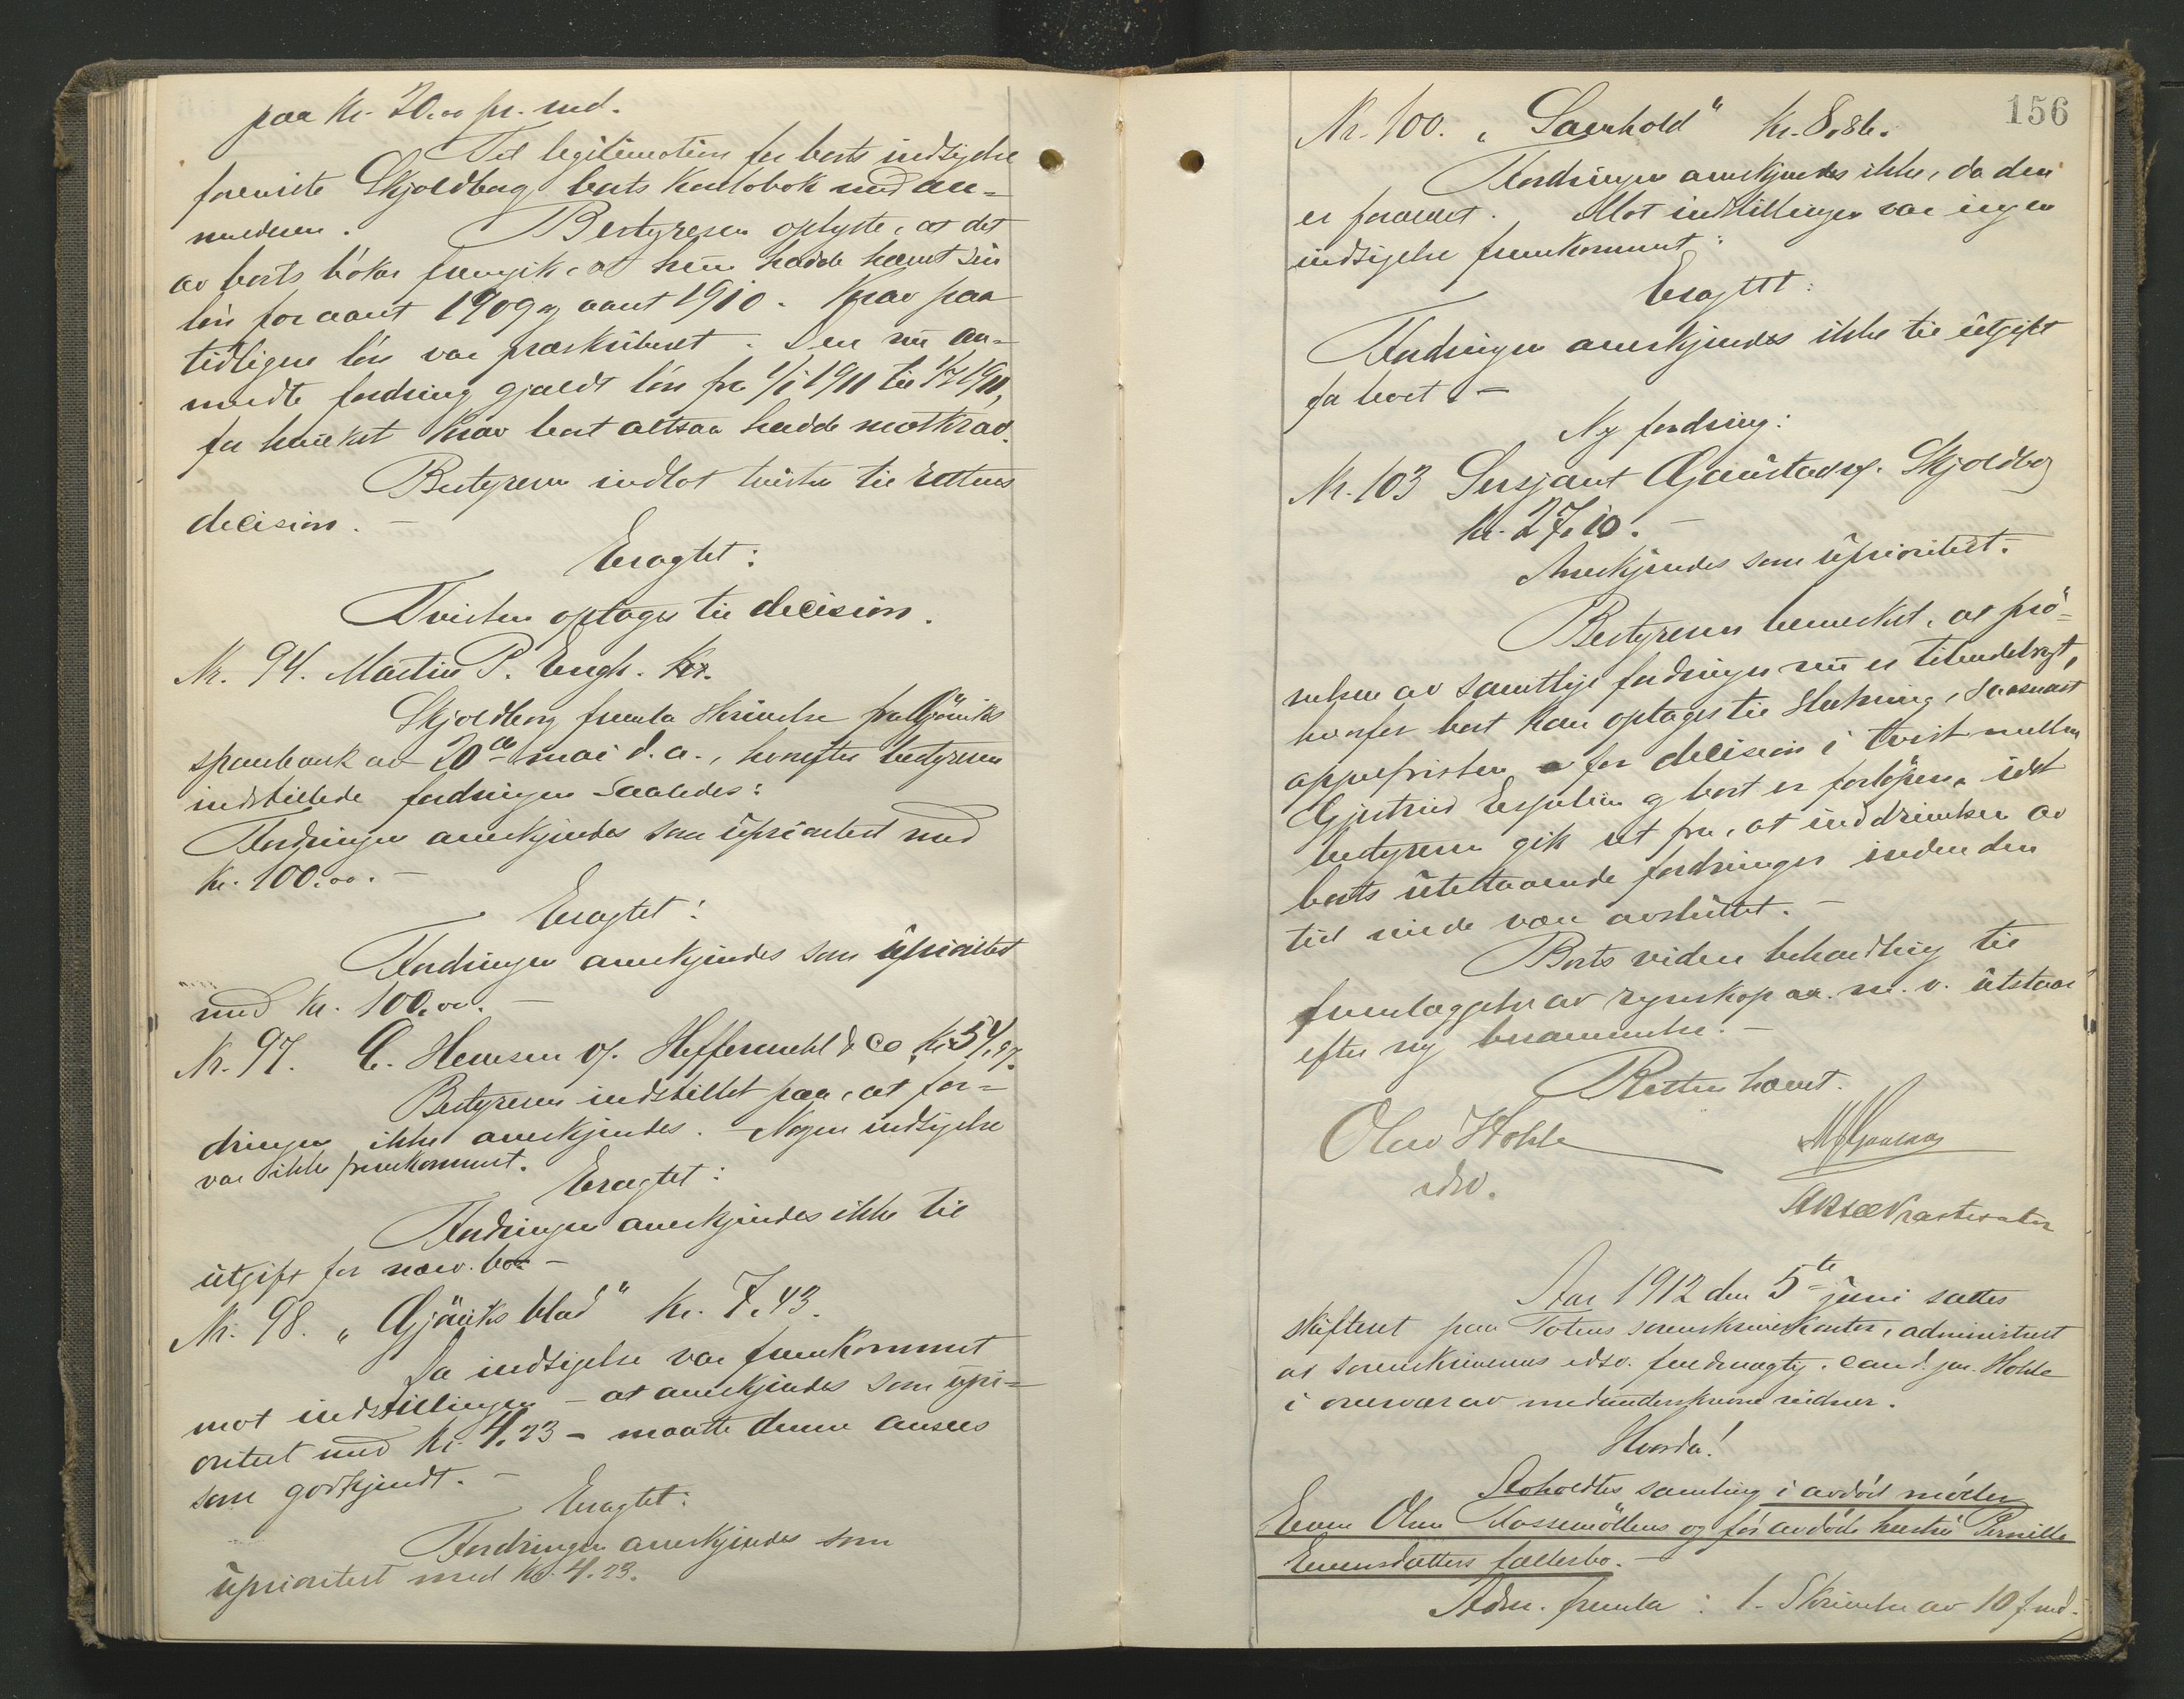 paa kr. 20.00 pr. md.
Til legitimation for boets indsigelse
foreviste Skjoldborg boets kontobok med an-
melderen. Bestyreren oplyste, at det
av boets böker fremgik, at hun hadde hævet sin
lön for aaret 1909 og aaret 1910. Krav paa
tidligere lön var præskriberet. Den nu an-
meldte fordring gjaldt lön fra 1/1 1911 til 1/7 1911,
for hvilket krav boet altsaa hadde motkrav.
Bestyreren indlot tvisten til rettens
decision. —
Eragtet:
Tvisten optages til decision.
Nr. 94. Martin P. Engh. kr.
Skjoldborg fremla skrivelse fra Gjöviks
sparebank av 20de mai d.a., hvorefter bestyreren
indstillede fordringen saaledes:
Fordringen anerkjendes som uprioritert med
kr. 100.00. —
Eragtet:
Fordringen anerkjendes som uprioritert
med kr. 100.00. —
Nr. 97. C. Hemsen v/ Heffermehl & Co, kr. 54,97.
Bestyreren indstillet paa, at for-
dringen ikke anerkjendes. Nogen indsigelse
var ikke fremkommet.
Eragtet:
Fordringen anerkjendes ikke til
utgift for nærv. bo —
Nr. 98. "Gjöviks blad" kr. 7.43.
Da indsigelse var fremkommet
mot indstillingen — at anerkjendes som upri-
oritert med kr. 4.23 — maatte denne ansees
som godkjendt. —
Eragtet:
Fordringen anerkjendes som
uprioritert med kr. 4.23.
156
Nr. 100. "Samhold" kr. 8.86.
Fordringen anerkjendes ikke, da den
er forældet. Mot indstillingen var ingen
indsigelse fremkommet:
Eragtet:
Fordringen anerkjendes ikke til utgift
for boet. —
Ny fordring:
Nr. 103 Sersjant Gaustad v/ Skjoldborg
kr. 27.10. —
Anerkjendes som uprioritert.
Bestyreren bemerket, at prö-
velsen av samtlige fordringer nu er tilendebragt,
hvorfor boet kan optages til slutning, saasnart
appelfristen for decision i tvist mellem
Gjertrud og boet er forlöpen, idet
bestyreren gik ut fra, at inddrivelsen av
boets utestaaende fordringer inden den
tid vilde være avsluttet. —
Boets videre behandling til
fremlæggelse av regnskap m.v. utstaar
efter ny berammelse. —
Retten hævet.
Olav Hohle
edsv.
Aar 1912 den 5te juni sattes
skifteret paa Totens sorenskriverkontor, administrert
av sorenskriverens edsv. fuldmægtig, cand. jur. Hohle
i overvær av medunderskrevne vidner.
Hvorda!
Avholdtes samling i avdöd möller
Even Olsen Kossemöllens og för avdöde hustru Pernille
Evensdatters fællesbo. —
Adm. fremla: 1. Skrivelse av 10 f. md.